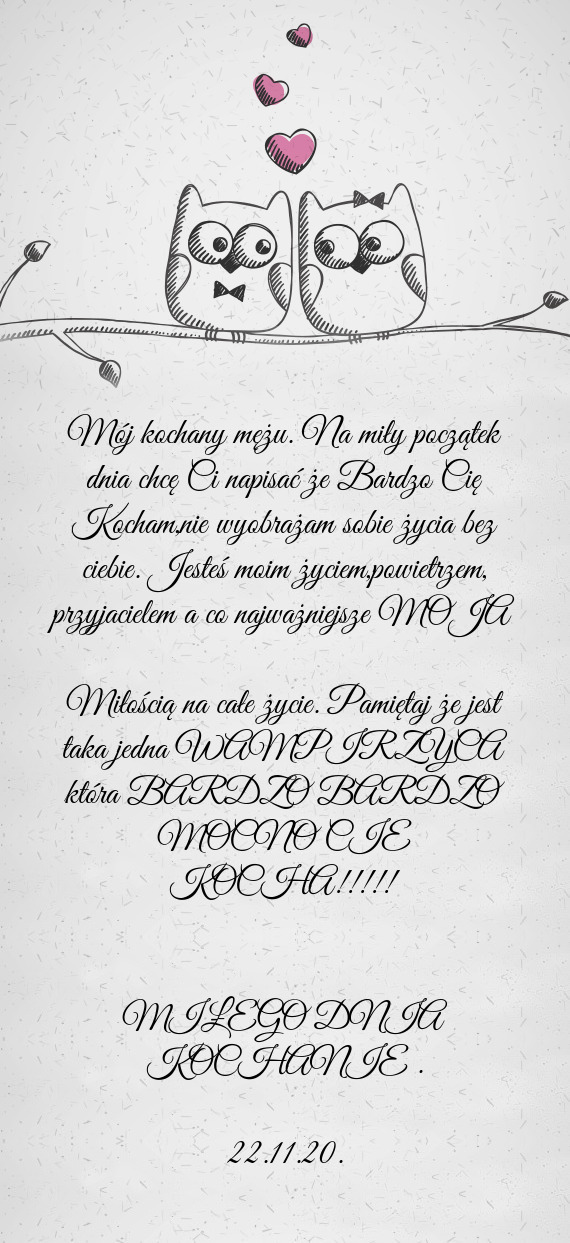 Mój kochany mężu. Na miły początek
dnia chcę Ci napisać że Bardzo Cię
Kocham,nie wyobrażam sobie życia bez
ciebie. Jesteś moim życiem,powietrzem,
przyjacielem a co najważniejsze MOJĄ
Miłością na całe życie. Pamiętaj że jest
taka jedna WAMPIRZYCA
która BARDZO BARDZO
MOCNO CIE
KOCHA!!!!!
MIŁEGO DNIA
KOCHANIE .
22.11.20.